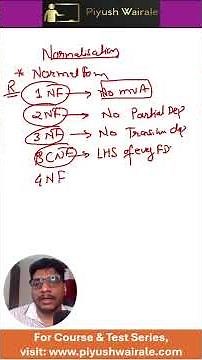 Piyush Wairale
Normalisation
* Normal form
R 1 NF → No MVA
2 NF → No Partial Dep
3 NF → No Transitive dep
BCNF → LHS of every FD
4 NF
For Course & Test Series,
visit: www.piyushwairale.com